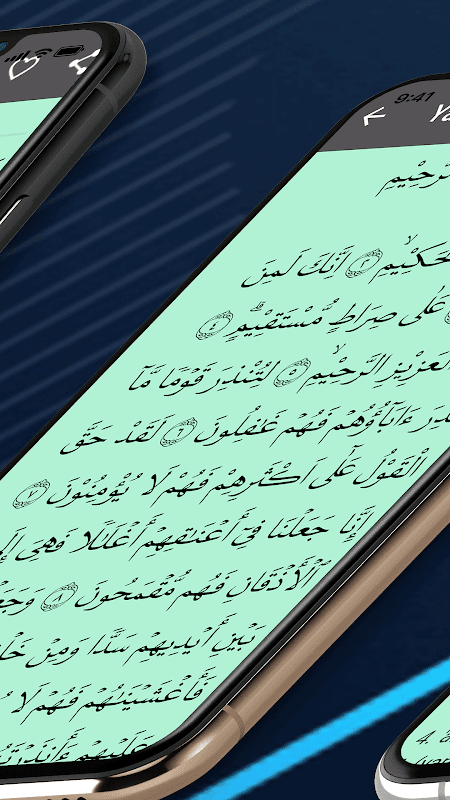 9:41
Ya
لرَّحِيْمِ
لْحَكِيْمِ ۙ ٢ اِنَّكَ لَمِنَ
عَلٰى صِرَاطٍ مُّسْتَقِيْمٍ ۗ ٤
لْعَزِيْزِ الرَّحِيْمِ ۙ ٥ لِتُنْذِرَ قَوْمًا مَّآ
ءَابَآؤُهُمْ فَهُمْ غٰفِلُوْنَ ٦ لَقَدْ حَقَّ
الْقَوْلُ عَلٰٓى اَكْثَرِهِمْ فَهُمْ لَا يُؤْمِنُوْنَ ٧
اِنَّا جَعَلْنَا فِيْٓ اَعْنَاقِهِمْ اَغْلٰلًا فَهِيَ اِلَى
الْاَذْقَانِ فَهُمْ مُّقْمَحُوْنَ ٨ وَجَعَ
بَيْنِ اَيْدِيْهِمْ سَدًّا وَمِنْ خَ
فَاَغْشَيْنٰهُمْ فَهُمْ لَا
عَلَيْهِمْ ءَاَنْذَرْتَ
4.